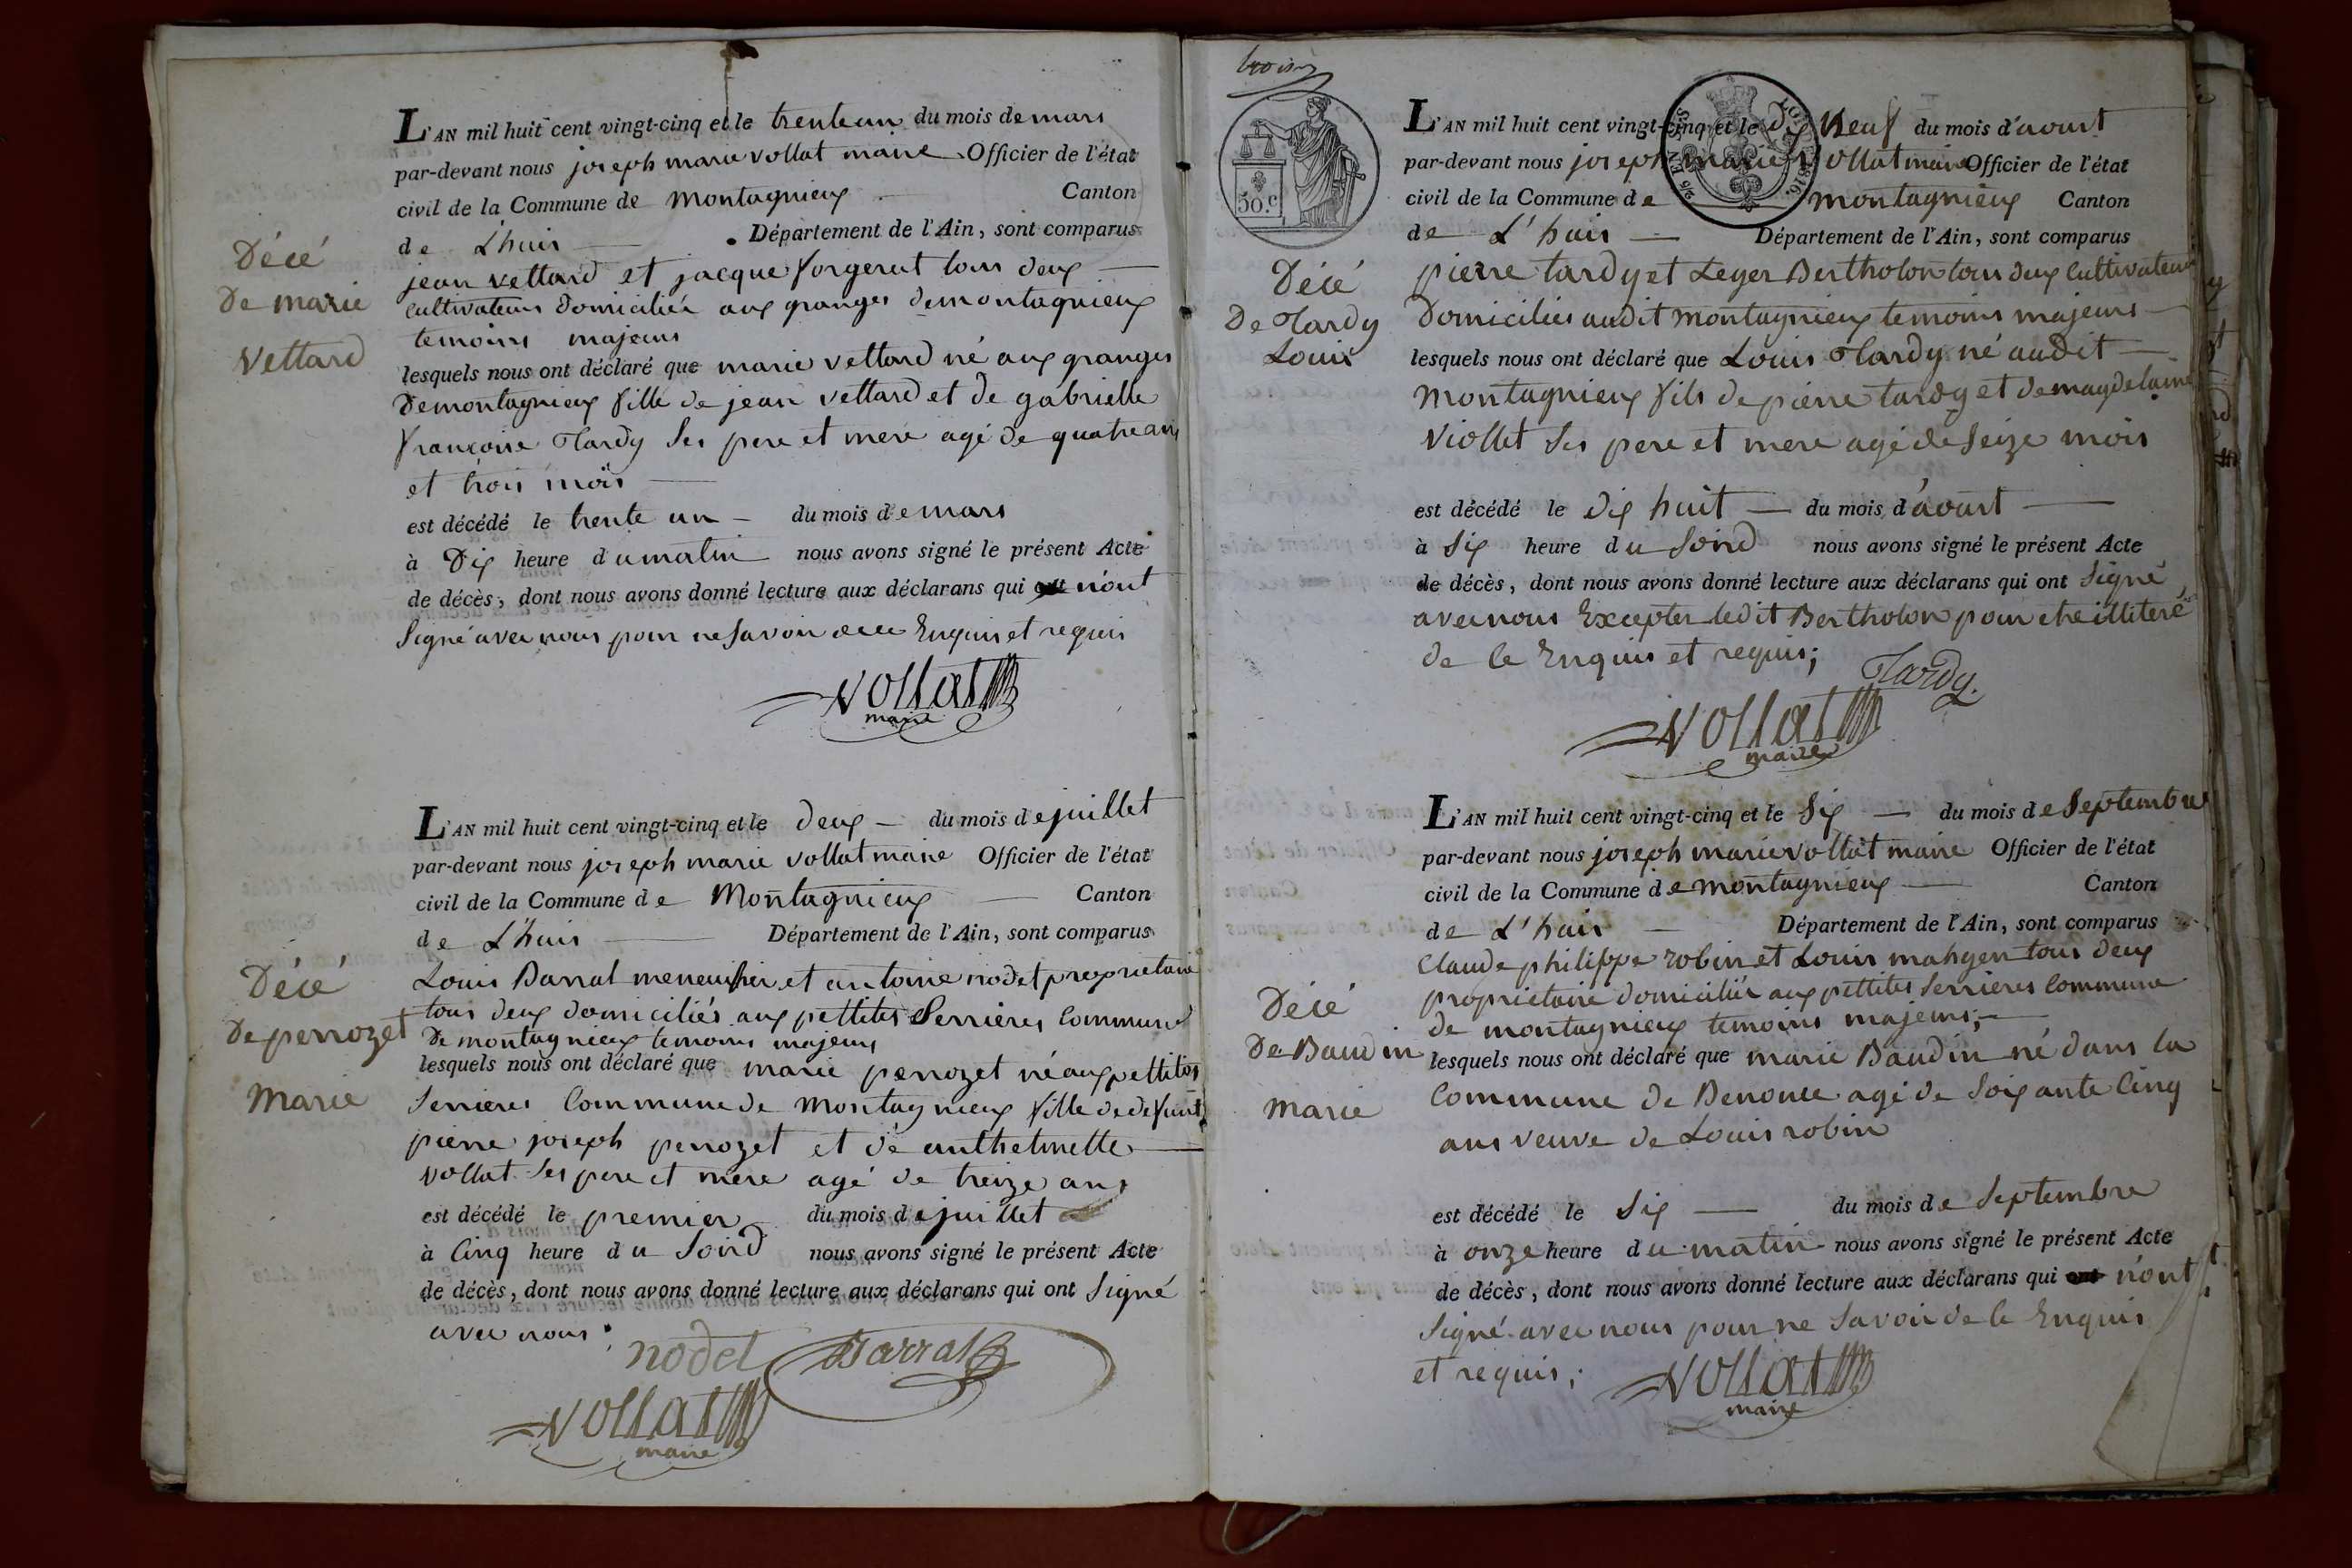 L'AN mil huit cent vingt-cinq et le trenteun du mois de mars
par-devant nous joseph marie vollat maire Officier de l'état
civil de la Commune de Montagnieux Canton
de L'huis Département de l'Ain, sont comparus
Décé
De marie
Vettard
jean vettard et jacque forgeret tous deux
Cultivateurs domiciliés aux granges demontagnieux
temoins majeurs
lesquels nous ont déclaré que marie vettard né aux granges
Demontagnieux fille de jean vettard et de gabrielle
françoise Tardy Ses pere et mere agé de quatre ans
et trois mois
est décédé le trente un du mois de mars
à Dix heure du matin nous avons signé le présent Acte
de décès, dont nous avons donné lecture aux déclarans qui n'ont
Signé avec nous pour ne Savoir Enquis et requis
Vollat
maire
L'AN mil huit cent vingt-cinq et le deux du mois de juillet
par-devant nous joseph marie vollat maire Officier de l'état
civil de la Commune de Montagnieux Canton
de L'huis Département de l'Ain, sont comparus
Décé
De perrozet
Marie
Louis Barrat menuisier et antoine nodet proprietaire
tous deux domiciliés aux pettites Serrieres Commune
De montagnieux temoins majeurs
lesquels nous ont déclaré que marie perrozet né aux pettites
Serrieres Commune de Montagnieux fille de defunt
pierre joseph perrozet et de anthelmette
vollat Ses pere et mere agé de treize ans
est décédé le premier du mois de juillet
à Cinq heure du Soird nous avons signé le présent Acte
de décès, dont nous avons donné lecture aux déclarans qui ont Signé
avec nous
nodet Barrat
Vollat
maire
trois
50.c
L'AN mil huit cent vingt-cinq et le dix Neuf du mois d'aoust
par-devant nous joseph marie vollat maire Officier de l'état
civil de la Commune de montagnieux Canton
de L'huis Département de l'Ain, sont comparus
Décé
De Tardy
Louis
pierre tardy et Leger Bertholon tous deux Cultivateurs
Domiciliés audit Montagnieux temoins majeurs
lesquels nous ont déclaré que Louis Tardy né audit
Montagnieux fils de pierre tardy et de magdelaine
Viollet Ses pere et mere agé de Seize mois
est décédé le dix huit du mois d'aoust
à Six heure du Soird nous avons signé le présent Acte
de décès, dont nous avons donné lecture aux déclarans qui ont Signé
avec nous Excepter ledit Bertholon pour etre illiteré
de ce Enquis et requis;
Tardy.
Vollat
maire
L'AN mil huit cent vingt-cinq et le Six du mois de Septembre
par-devant nous joseph marie vollat maire Officier de l'état
civil de la Commune de montagnieux Canton
de L'huis Département de l'Ain, sont comparus
Décé
De Baudin
Marie
Claude philippe robin et Louis mahyen tous deux
proprietaire domiciliés aux pettites Serrieres Commune
de montagnieux temoins majeurs;
lesquels nous ont déclaré que marie Baudin né dans la
Commune de Benonce agé de Soixante Cinq
ans veuve de Louis robin
est décédé le Six du mois de Septembre
à onze heure du matin nous avons signé le présent Acte
de décès, dont nous avons donné lecture aux déclarans qui n'ont
Signé avec nous pour ne Savoir de ce Enquis
et requis;
Vollat
maire